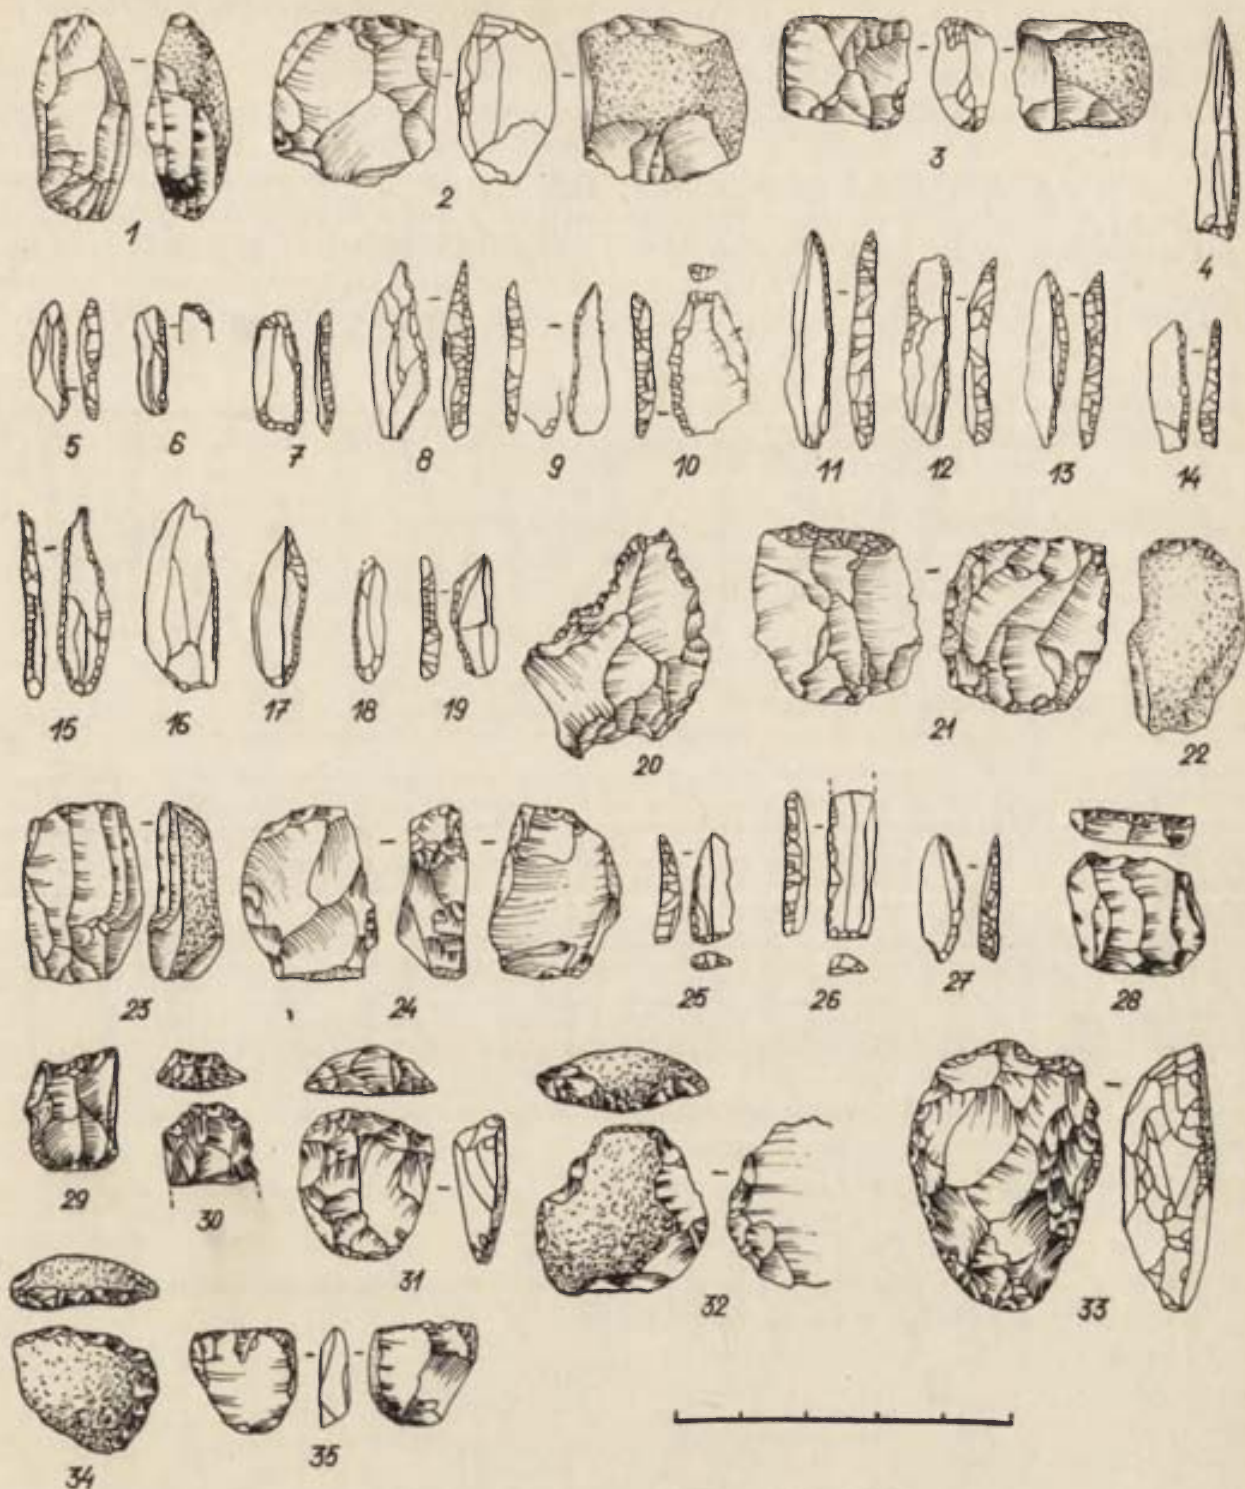 1
2
3
4
5
6
7
8
9
10
11
12
13
14
15
16
17
18
19
20
21
22
23
24
25
26
27
28
29
30
31
32
33
34
35